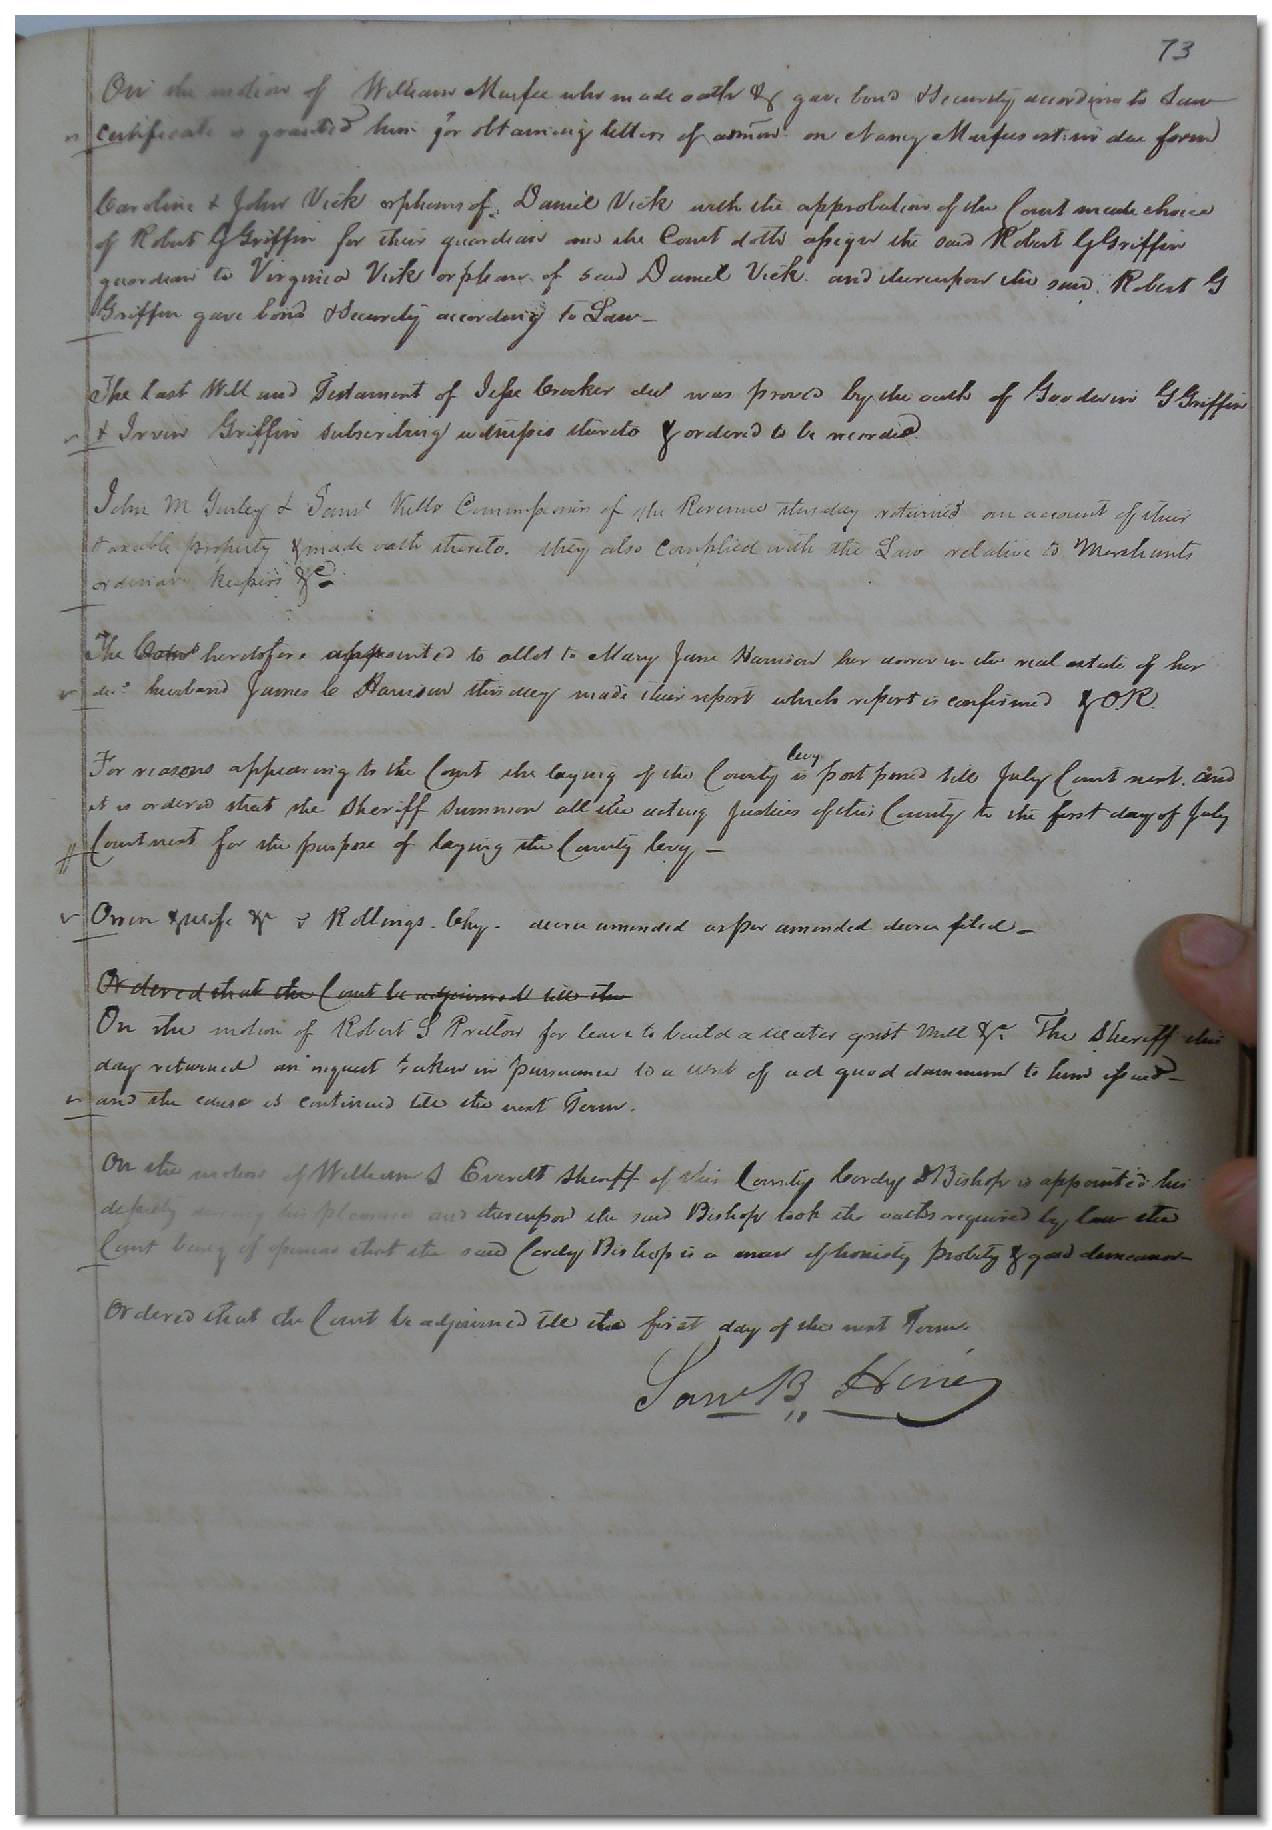 73
On the motion of William Murfee who made oath & gave bond & Security according to Law
certificate is granted him for obtaining letters of admon. on Nancy Murfees est: in due form
Caroline & John Vick orphans of Daniel Vick with the approbation of the Court made choice
of Robert G Griffin for their guardian and the Court doth assign the said Robert G Griffin
guardian to Virginia Vick orphan of said Daniel Vick. and thereupon the said Robert G
Griffin gave bond & Security according to Law—
The Last Will and Testament of Jesse Crocker decd was proved by the oath of Goodwin G Griffin
& Irvin Griffin subscribing witnesses thereto & ordered to be recorded
John M Gurley & Saml Kello Commissioners of the Revenue this day returned an account of their
taxable property & made oath thereto. they also complied with the Law relative to Merchants
ordinary keepers &c
The Comrs heretofore appointed to allot to Mary Jane Harrison her dower in the real estate of her
decd husband James C Harrison this day made their report which report is confirmed & O.R.
levy
For reasons appearing to the Court the laying of the County is postponed till July Court next. and
it is ordered that the Sheriff summon all the acting Justices of this County to the first day of July
Court next for the purpose of laying the County levy—
Orren & wife &c v Rollings. Chy. decree amended as per amended decree filed—
Ordered that the Court be adjourned till the
On the motion of Robert S Pretlow for leave to build a water grist Mill &c. The Sheriff this
day returned an inquest taken in pursuance to a writ of ad quod damnum to him issued—
and the cause is continued till the next Term.
On the motion of William D Everett Sheriff of this County Cordy D Bishop is appointed his
deputy during his pleasure and thereupon the said Bishop took the oaths required by law the
Court being of opinion that the said Cordy Bishop is a man of honesty probity & good demeanor—
Ordered that the Court be adjourned till the first day of the next Term.
Saml B Hines